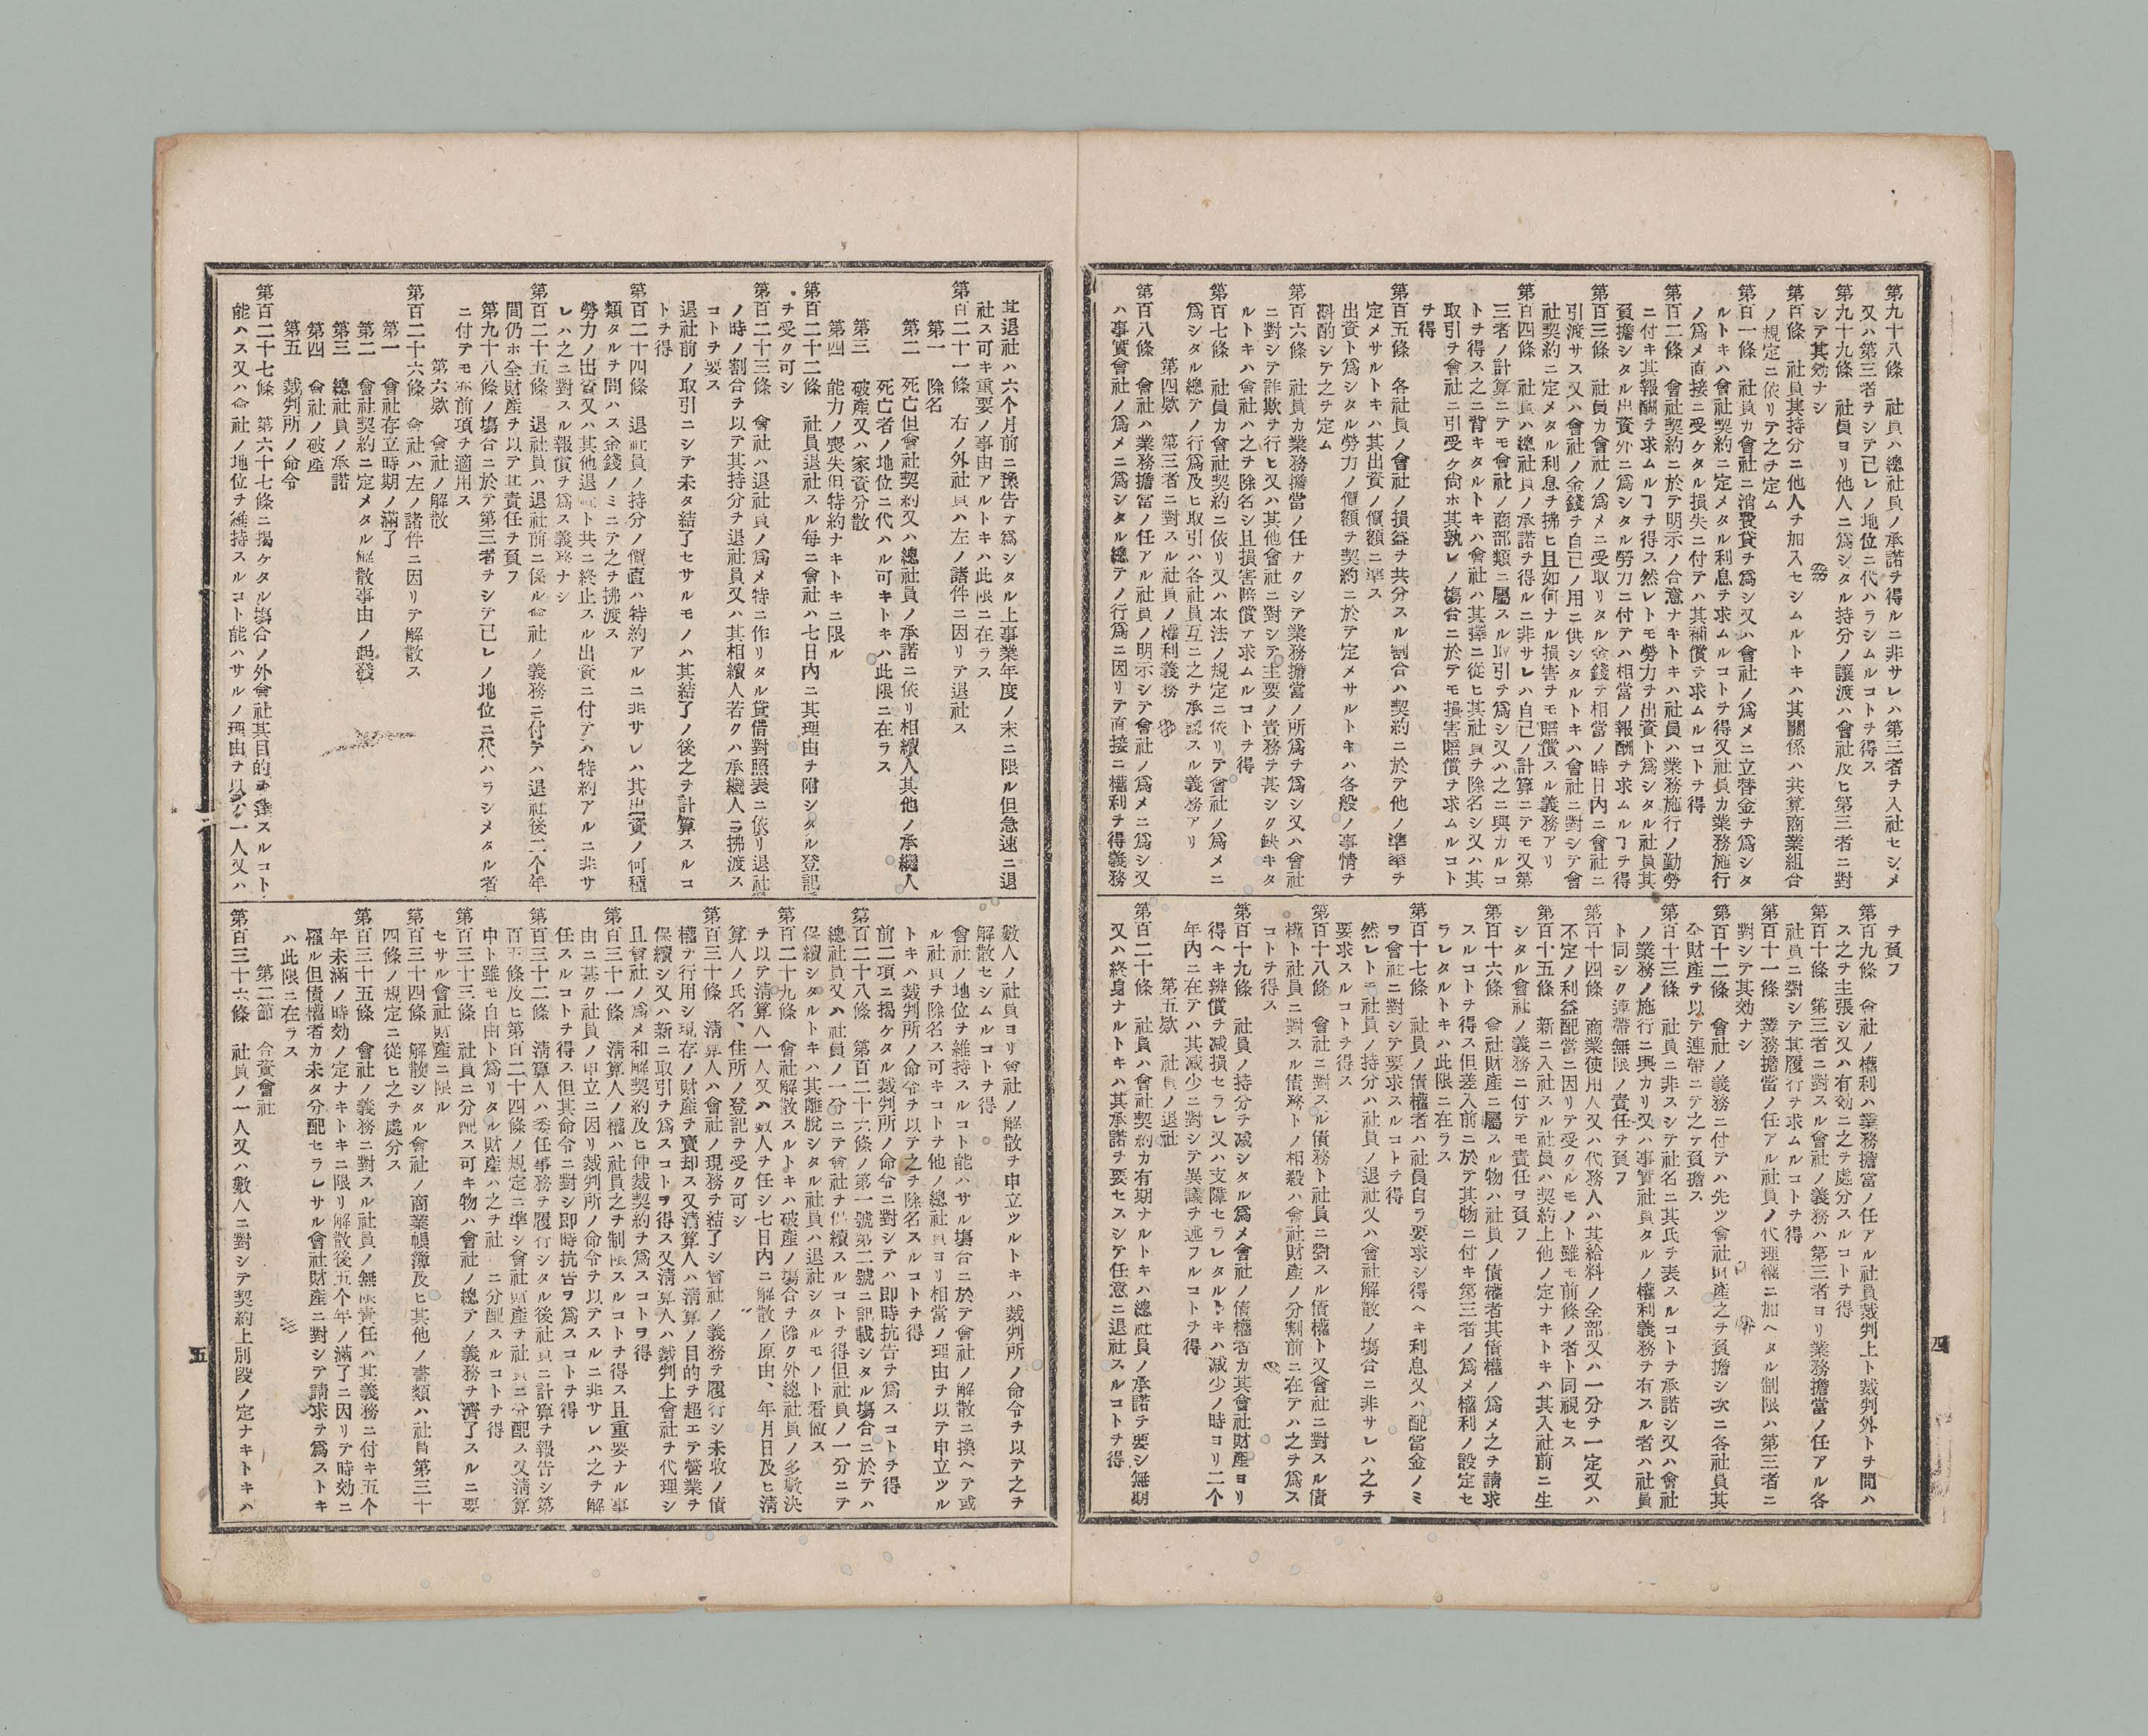 第九十八條　社員ハ總社員ノ承諾ヲ得ルニ非サレハ第三者ヲ入社セシメ
又ハ第三者ヲシテ己レノ地位ニ代ハラシムルコトヲ得ス
第九十九條　社員ヨリ他人ニ爲シタル持分ノ讓渡ハ會社及ヒ第三者ニ對
シテ其効ナシ
第百條　社員其持分ニ他人ヲ加入セシムルトキハ其關係ハ共算商業組合
ノ規定ニ依リテ之ヲ定ム
第百一條　社員カ會社ニ消費貸ヲ爲シ又ハ會社ノ爲メニ立替金ヲ爲シタ
ルトキハ會社契約ニ定メタル利息ヲ求ムルコトヲ得又社員カ業務施行
ノ爲メ直接ニ受ケタル損失ニ付テハ其補償ヲ求ムルコトヲ得
第百二條　會社契約ニ於テ明示ノ合意ナキトキハ社員ハ業務施行ノ勤勞
ニ付キ其報酬ヲ求ムルヿヲ得ス然レトモ勞力ヲ出資ト爲シタル社員其
負擔シタル出資外ニ爲シタル勞力ニ付テハ相當ノ報酬ヲ求ムルヿヲ得
第百三條　社員カ會社ノ爲メニ受取リタル金錢ヲ相當ノ時日內ニ會社ニ
引渡サス又ハ會社ノ金錢ヲ自己ノ用ニ供シタルトキハ會社ニ對シテ會
社契約ニ定メタル利息ヲ拂ヒ且如何ナル損害ヲモ賠償スル義務アリ
第百四條　社員ハ總社員ノ承諾ヲ得ルニ非サレハ自己ノ計算ニテモ又第
三者ノ計算ニテモ會社ノ商部類ニ屬スル取引ヲ爲シ又ハ之ニ與カルコ
トヲ得ス之ニ背キタルトキハ會社ハ其擇ニ從ヒ其社員ヲ除名シ又ハ其
取引ヲ會社ニ引受ケ尙ホ其孰レノ塲合ニ於テモ損害賠償ヲ求ムルコト
ヲ得
第百五條　各社員ノ會社ノ損益ヲ共分スル割合ハ契約ニ於テ他ノ準率ヲ
定メサルトキハ其出資ノ價額ニ準ス
出資ト爲シタル勞力ノ價額ヲ契約ニ於テ定メサルトキハ各般ノ事情ヲ
斟酌シテ之ヲ定ム
第百六條　社員カ業務擔當ノ任ナクシテ業務擔當ノ所爲ヲ爲シ又ハ會社
ニ對シテ詐欺ヲ行ヒ又ハ其他會社ニ對シテ主要ノ責務ヲ甚シク缺キタ
ルトキハ會社ハ之ヲ除名シ且損害賠償ヲ求ムルコトヲ得
第百七條　社員カ會社契約ニ依リ又ハ本法ノ規定ニ依リテ會社ノ爲メニ
爲シタル總テノ行爲及ヒ取引ハ各社員互ニ之ヲ承認スル義務アリ
第四欵　第三者ニ對スル社員ノ權利義務
第百八條　會社ハ業務擔當ノ任アル社員ノ明示シテ會社ノ爲メニ爲シ又
ハ事實會社ノ爲メニ爲シタル總テノ行爲ニ因リテ直接ニ權利ヲ得義務
ヲ負フ
第百九條　會社ノ權利ハ業務擔當ノ任アル社員裁判上ト裁判外トヲ問ハ
ス之ヲ主張シ又ハ有効ニ之ヲ處分スルコトヲ得
第百十條　第三者ニ對スル會社ノ義務ハ第三者ヨリ業務擔當ノ任アル各
社員ニ對シテ其履行ヲ求ムルコトヲ得
第百十一條　業務擔當ノ任アル社員ノ代理權ニ加ヘタル制限ハ第三者ニ
對シテ其効ナシ
第百十二條　會社ノ義務ニ付テハ先ツ會社財產之ヲ負擔シ次ニ各社員其
全財產ヲ以テ連帶ニテ之ヲ負擔ス
第百十三條　社員ニ非スシテ社名ニ其氏ヲ表スルコトヲ承諾シ又ハ會社
ノ業務ノ施行ニ與カリ又ハ事實社員タルノ權利義務ヲ有スル者ハ社員
ト同シク連帶無限ノ責任ヲ負フ
第百十四條　商業使用人又ハ代務人ハ其給料ノ全部又ハ一分ヲ一定又ハ
不定ノ利益配當ニ因リテ受クルモノト雖モ前條ノ者ト同視セス
第百十五條　新ニ入社スル社員ハ契約上他ノ定ナキトキハ其入社前ニ生
シタル會社ノ義務ニ付テモ責任ヲ負フ
第百十六條　會社財產ニ屬スル物ハ社員ノ債權者其債權ノ爲メ之ヲ請求
スルコトヲ得ス但差入前ニ於テ其物ニ付キ第三者ノ爲メ權利ノ設定セ
ラレタルトキハ此限ニ在ラス
第百十七條　社員ノ債權者ハ社員自ラ要求シ得ヘキ利息又ハ配當金ノミ
ヲ會社ニ對シテ要求スルコトヲ得
然レトモ社員ノ持分ハ社員ノ退社又ハ會社解散ノ塲合ニ非サレハ之ヲ
要求スルコトヲ得ス
第百十八條　會社ニ對スル債務ト社員ニ對スル債權ト又會社ニ對スル債
權ト社員ニ對スル債務トノ相殺ハ會社財產ノ分割前ニ在テハ之ヲ爲ス
コトヲ得ス
第百十九條　社員ノ持分ヲ减シタル爲メ會社ノ債權者カ其會社財產ヨリ
得ヘキ辨償ヲ减損セラレ又ハ支障セラレタルトキハ减少ノ時ヨリ二个
年內ニ在テハ其减少ニ對シテ異議ヲ述フルコトヲ得
第五欵　社員ノ退社
第百二十條　社員ハ會社契約カ有期ナルトキハ總社員ノ承諾ヲ要シ無期
又ハ終身ナルトキハ其承諾ヲ要セスシテ任意ニ退社スルコトヲ得
四
其退社ハ六个月前ニ豫告ヲ爲シタル上事業年度ノ末ニ限ル但急速ニ退
社ス可キ重要ノ事由アルトキハ此限ニ在ラス
第百二十一條　右ノ外社員ハ左ノ諸件ニ因リテ退社ス
第一　除名
第二　死亡但會社契約又ハ總社員ノ承諾ニ依リ相續人其他ノ承繼人
死亡者ノ地位ニ代ハル可キトキハ此限ニ在ラス
第三　破產又ハ家資分散
第四　能力ノ喪失但特約ナキトキニ限ル
第百二十二條　社員退社スル每ニ會社ハ七日內ニ其理由ヲ附シタル登記
ヲ受ク可シ
第百二十三條　會社ハ退社員ノ爲メ特ニ作リタル貸借對照表ニ依リ退社
ノ時ノ割合ヲ以テ其持分ヲ退社員又ハ其相續人若クハ承繼人ニ拂渡ス
コトヲ要ス
退社前ノ取引ニシテ未タ結了セサルモノハ其結了ノ後之ヲ計算スルコ
トヲ得
第百二十四條　退社員ノ持分ノ價直ハ特約アルニ非サレハ其出資ノ何種
類タルヲ問ハス金錢ノミニテ之ヲ拂渡ス
勞力ノ出資又ハ其他退社ト共ニ終止スル出資ニ付テハ特約アルニ非サ
レハ之ニ對スル報償ヲ爲ス義務ナシ
第百二十五條　退社員ハ退社前ニ係ル會社ノ義務ニ付テハ退社後二个年
間仍ホ全財產ヲ以テ其責任ヲ負フ
第九十八條ノ塲合ニ於テ第三者ヲシテ己レノ地位ニ代ハラシメタル者
ニ付テモ亦前項ヲ適用ス
第六欵　會社ノ解散
第百二十六條　會社ハ左ノ諸件ニ因リテ解散ス
第一　會社存立時期ノ滿了
第二　會社契約ニ定メタル解散事由ノ起發
第三　總社員ノ承諾
第四　會社ノ破產
第五　裁判所ノ命令
第百二十七條　第六十七條ニ揭ケタル塲合ノ外會社其目的ヲ達スルコト
能ハス又ハ會社ノ地位ヲ維持スルコト能ハサルノ理由ヲ以テ一人又ハ
數人ノ社員ヨリ會社ノ解散ヲ申立ツルトキハ裁判所ノ命令ヲ以テ之ヲ
解散セシムルコトヲ得
會社ノ地位ヲ維持スルコト能ハサル塲合ニ於テ會社ノ解散ニ換ヘテ或
ル社員ヲ除名ス可キコトヲ他ノ總社員ヨリ相當ノ理由ヲ以テ申立ツル
トキハ裁判所ノ命令ヲ以テ之ヲ除名スルコトヲ得
前二項ニ揭ケタル裁判所ノ命令ニ對シテハ即時抗告ヲ爲スコトヲ得
第百二十八條　第百二十六條ノ第一號第二號ニ記載シタル塲合ニ於テハ
總社員又ハ社員ノ一分ニテ會社ヲ保續スルコトヲ得但社員ノ一分ニテ
保續シタルトキハ其離脫シタル社員ハ退社シタルモノト看做ス
第百二十九條　會社解散スルトキハ破產ノ塲合ヲ除ク外總社員ノ多數決
ヲ以テ淸算人一人又ハ數人ヲ任シ七日內ニ解散ノ原由、年月日及ヒ淸
算人ノ氏名、住所ノ登記ヲ受ク可シ
第百三十條　淸算人ハ會社ノ現務ヲ結了シ會社ノ義務ヲ履行シ未收ノ債
權ヲ行用シ現存ノ財產ヲ賣却ス又淸算人ハ淸算ノ目的ヲ超エテ營業ヲ
保續シ又ハ新ニ取引ヲ爲スコトヲ得ス又淸算人ハ裁判上會社ヲ代理シ
且會社ノ爲メ和解契約及ヒ仲裁契約ヲ爲スコトヲ得
第百三十一條　淸算人ノ權ハ社員之ヲ制限スルコトヲ得ス且重要ナル事
由ニ基ク社員ノ申立ニ因リ裁判所ノ命令ヲ以テスルニ非サレハ之ヲ解
任スルコトヲ得ス但其命令ニ對シ即時抗告ヲ爲スコトヲ得
第百三十二條　淸算人ハ委任事務ヲ履行シタル後社員ニ計算ヲ報告シ第
百五條及ヒ第百二十四條ノ規定ニ準シ會社財產ヲ社員ニ分配ス又淸算
中ト雖モ自由ト爲リタル財產ハ之ヲ社員ニ分配スルコトヲ得
第百三十三條　社員ニ分配ス可キ物ハ會社ノ總テノ義務ヲ濟了スルニ要
セサル會社財產ニ限ル
第百三十四條　解散シタル會社ノ商業帳簿及ヒ其他ノ書類ハ社員第三十
四條ノ規定ニ從ヒ之ヲ處分ス
第百三十五條　會社ノ義務ニ對スル社員ノ無限責任ハ其義務ニ付キ五个
年未滿ノ時効ノ定ナキトキニ限リ解散後五个年ノ滿了ニ因リテ時効ニ
罹ル但債權者カ未タ分配セラレサル會社財產ニ對シテ請求ヲ爲ストキ
ハ此限ニ在ラス
第二節　合資會社
第百三十六條　社員ノ一人又ハ數人ニ對シテ契約上別段ノ定ナキトキハ
五